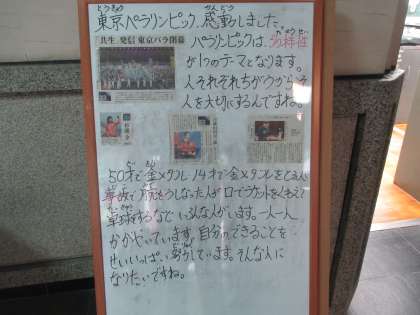 とうきょう かんどう
東京パラリンピック、感動しました。
「共生」発信 東京パラ閉幕
パラリンピックは、多様性
が1つのテーマとなります。
人それぞれちがうからこそ
人を大切にするんですね。
50才で金メダル 14才で金メダルをとる人
事故で 腕をうしなった人が口でラケットをくわえて
卓球するなど いろんな人がいます。一人一人
かがやいています。自分のできることを
せいいっぱい努力しています。そんな人に
なりたいですね。